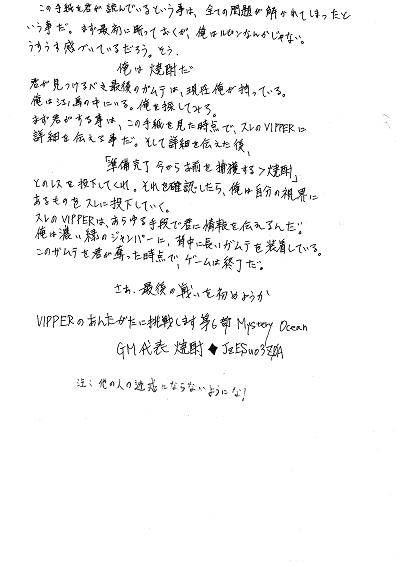 この手紙を君が読んでいるという事は、全ての問題が解かれてしまったと
いう事だ。まず最初に断っておくが、俺はルパンなんかじゃない。
うすうす感づいているだろう。そう、
俺は焼酎だ
君が見つけるべき最後のガムテは、現在俺が持っている。
俺は江ノ島の中にいる。俺を探してみろ。
まず君がする事は、この手紙を見た時点で、スレのVIPPERに
詳細を伝える事だ。そして詳細を伝えた後、
「準備完了 今からお前を捕獲する>焼酎」
とのレスを投下してくれ。それを確認したら、俺は自分の視界に
あるものをスレに投下していく。
スレのVIPPERは、あらゆる手段で君に情報を伝えるんだ。
俺は濃い緑のジャンパーに、背中に長いガムテを装着している。
このガムテを君が奪った時点で、ゲームは終了だ。
さあ、最後の戦いを始めようか
VIPPERのあんたがたに挑戦します 第6部 Mystery Ocean
GM代表 焼酎
注: 他の人の迷惑にならないようにな!